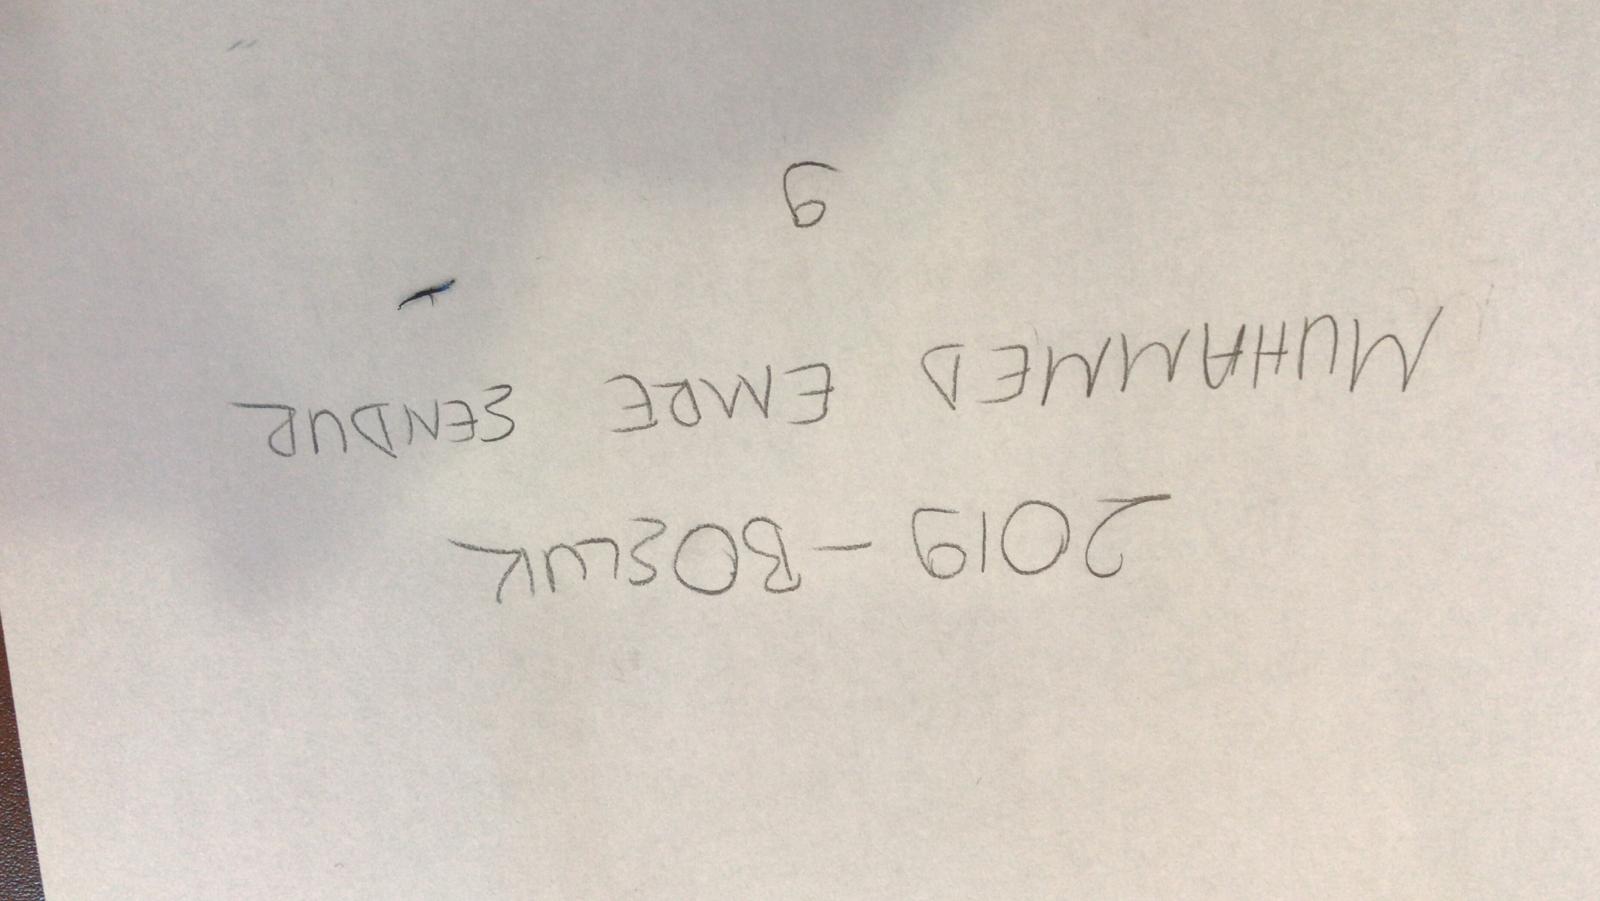 2019 - BOŞLUK
MUHAMMED EMRE ŞENDUR
9